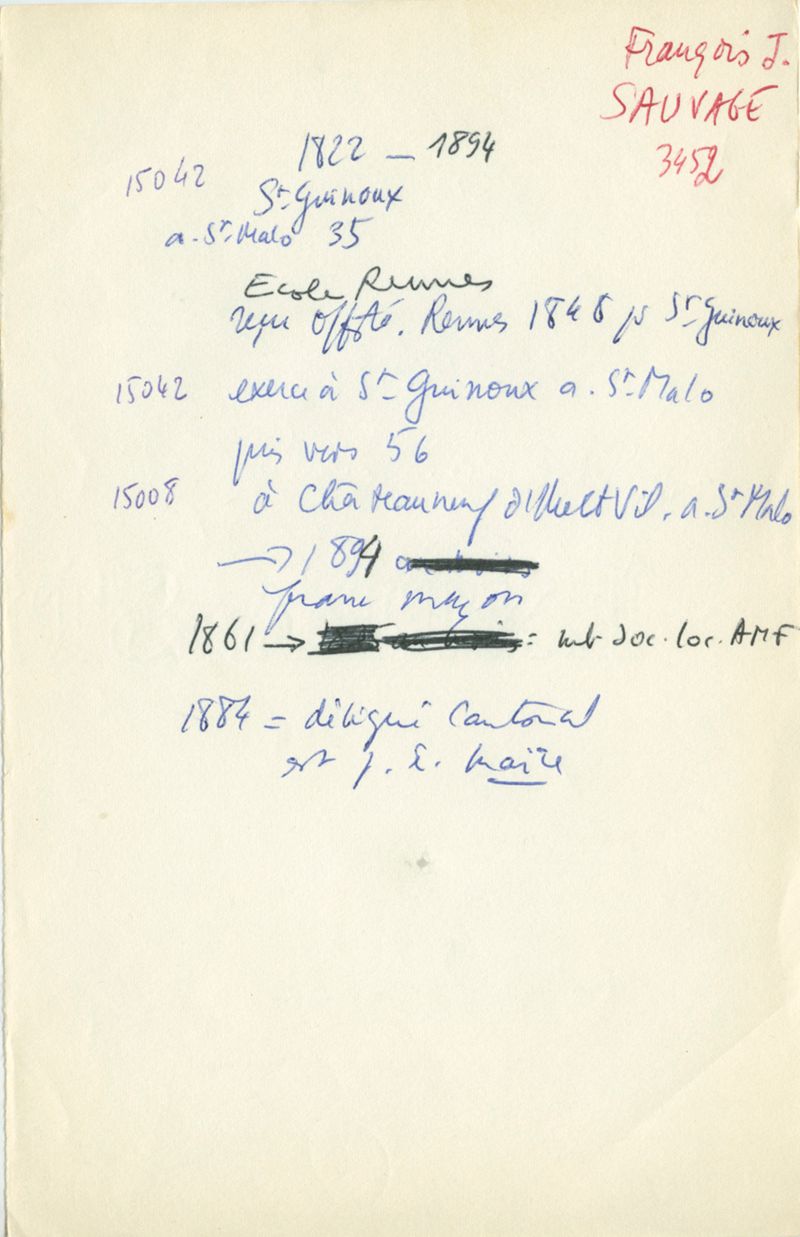 François J.
SAUVAGE
3452
1822 — 1894
15042
St-Guinoux
a. St-Malo 35
Ecole Rennes
reçu offté. Rennes 1848 pr St-Guinoux
15042 exerce à St-Guinoux a. St-Malo
puis vers 56
15008 à Châteauneuf d'Ille et Vil. a. St Malo
→ 1894
franc maçon
1861 → = mb soc. loc. AMF
1884 = délégué cantonal
est j. L. Maire